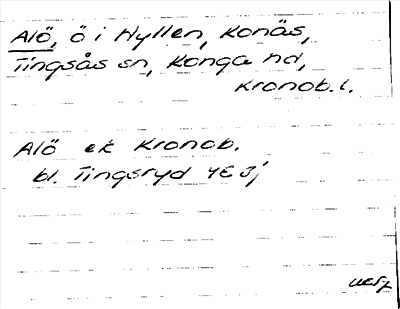 Alö, ö i Hyllen, Konäs,
Tingsås sn, Konga hd,
Kronob. l.
Alö ek Kronob.
bl. Tingsryd 4E j